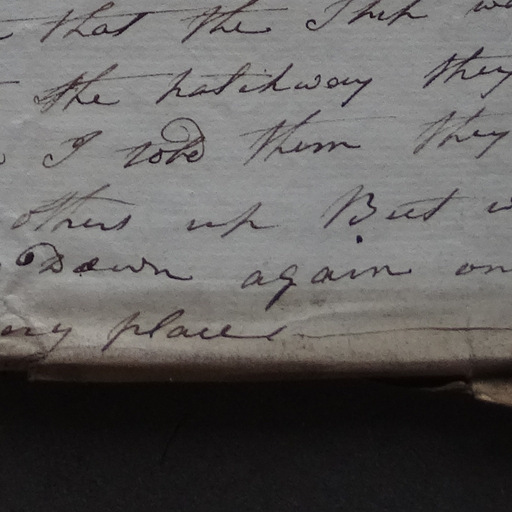 that the Ship
the hatchway they
I told them they
others up But
Down again on
place